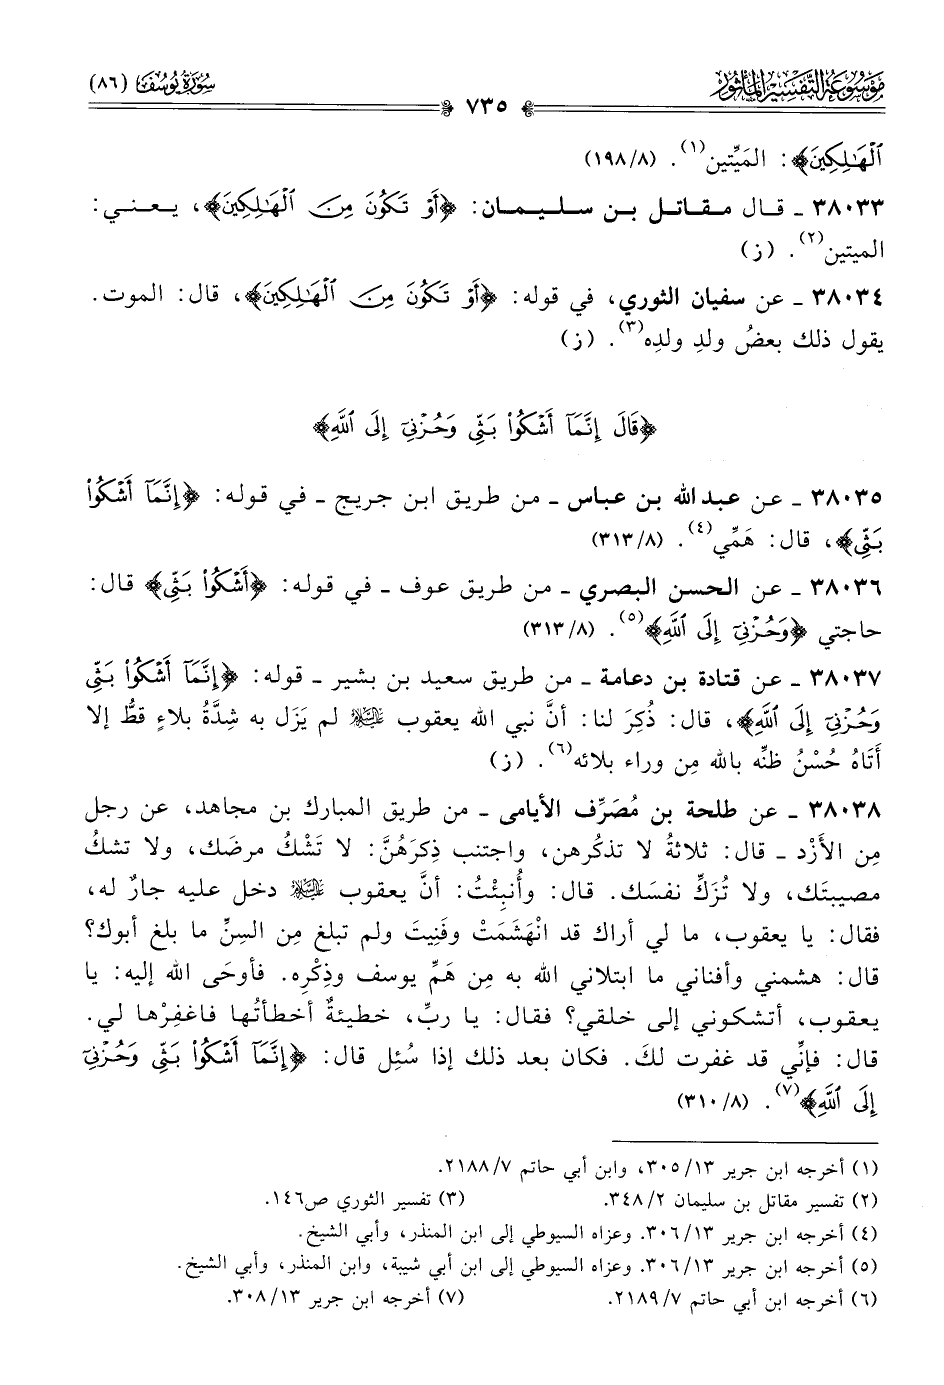 مَوْسُوعَة التَّفْسِير المَأْثُور
سُورَةُ يُوسُفَ (٨٦)
٧٣٥
ٱلْهَـٰلِكِينَ﴾: المَيِّتين(١). (١٩٨/٨)
٣٨٠٣٣ ـ قال مقاتل بن سليمان: ﴿أَوْ تَكُونَ مِنَ ٱلْهَـٰلِكِينَ﴾، يعني:
الميتين(٢). (ز)
٣٨٠٣٤ ـ عن سفيان الثوري، في قوله: ﴿أَوْ تَكُونَ مِنَ ٱلْهَـٰلِكِينَ﴾، قال: الموت.
يقول ذلك بعضُ ولدِ ولدِه(٣). (ز)
﴿قَالَ إِنَّمَآ أَشْكُوا۟ بَثِّى وَحُزْنِىٓ إِلَى ٱللَّهِ﴾
٣٨٠٣٥ ـ عن عبد الله بن عباس ـ من طريق ابن جريج ـ في قوله: ﴿إِنَّمَآ أَشْكُوا۟
بَثِّى﴾، قال: هَمِّي(٤). (٣١٣/٨)
٣٨٠٣٦ ـ عن الحسن البصري ـ من طريق عوف ـ في قوله: ﴿أَشْكُوا۟ بَثِّى﴾ قال:
حاجتي ﴿وَحُزْنِىٓ إِلَى ٱللَّهِ﴾(٥). (٣١٣/٨)
٣٨٠٣٧ ـ عن قتادة بن دعامة ـ من طريق سعيد بن بشير ـ قوله: ﴿إِنَّمَآ أَشْكُوا۟ بَثِّى
وَحُزْنِىٓ إِلَى ٱللَّهِ﴾، قال: ذُكِرَ لنا: أنَّ نبي الله يعقوب عليه السلام لم يَزَل به شِدَّةُ بلاءٍ قطُّ إلا
أَتَاهُ حُسْنُ ظنِّه بالله مِن وراء بلائه(٦). (ز)
٣٨٠٣٨ ـ عن طلحة بن مُصَرِّف الأيامى ـ من طريق المبارك بن مجاهد، عن رجل
مِن الأَزْد ـ قال: ثلاثةُ لا تذكُرهن، واجتنب ذِكرَهُنَّ: لا تَشْكُ مرضَك، ولا تشكُ
مصيبتَك، ولا تُزَكِّ نفسَك. قال: وأُنبِئْتُ: أنَّ يعقوب عليه السلام دخل عليه جارٌ له،
فقال: يا يعقوب، ما لي أراك قد انْهَشَمَتْ وفَنِيتَ ولم تبلغ مِن السِنِّ ما بلغ أبوك؟
قال: هشمني وأفناني ما ابتلاني الله به مِن هَمِّ يوسف وذِكْرِه. فأوحَى الله إليه: يا
يعقوب، أتشكوني إلى خلقي؟ فقال: يا ربِّ، خطيئةٌ أخطأتُها فاغفِرْها لي.
قال: فإنِّي قد غفرت لكَ. فكان بعد ذلك إذا سُئِل قال: ﴿إِنَّمَآ أَشْكُوا۟ بَثِّى وَحُزْنِىٓ
إِلَى ٱللَّهِ﴾(٧). (٣١٠/٨)
(١) أخرجه ابن جرير ٣٠٥/١٣، وابن أبي حاتم ٢١٨٨/٧.
(٢) تفسير مقاتل بن سليمان ٣٤٨/٢. (٣) تفسير الثوري ص١٤٦.
(٤) أخرجه ابن جرير ٣٠٦/١٣. وعزاه السيوطي إلى ابن المنذر، وأبي الشيخ.
(٥) أخرجه ابن جرير ٣٠٦/١٣. وعزاه السيوطي إلى ابن أبي شيبة، وابن المنذر، وأبي الشيخ.
(٦) أخرجه ابن أبي حاتم ٢١٨٩/٧. (٧) أخرجه ابن جرير ٣٠٨/١٣.